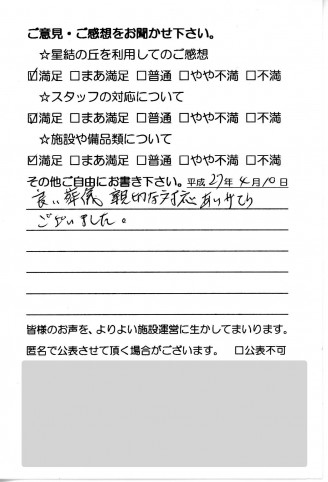 ご意見・ご感想をお聞かせ下さい。
☆星結の丘を利用してのご感想
☑満足 □まあ満足 □普通 □やや不満 □不満
☆スタッフの対応について
☑満足 □まあ満足 □普通 □やや不満 □不満
☆施設や備品類について
☑満足 □まあ満足 □普通 □やや不満 □不満
その他ご自由にお書き下さい。平成27年4月10日
良い葬儀 親切な対応ありがとう
ございました。
皆様のお声を、よりよい施設運営に生かしてまいります。
匿名で公表させて頂く場合がございます。 □公表不可